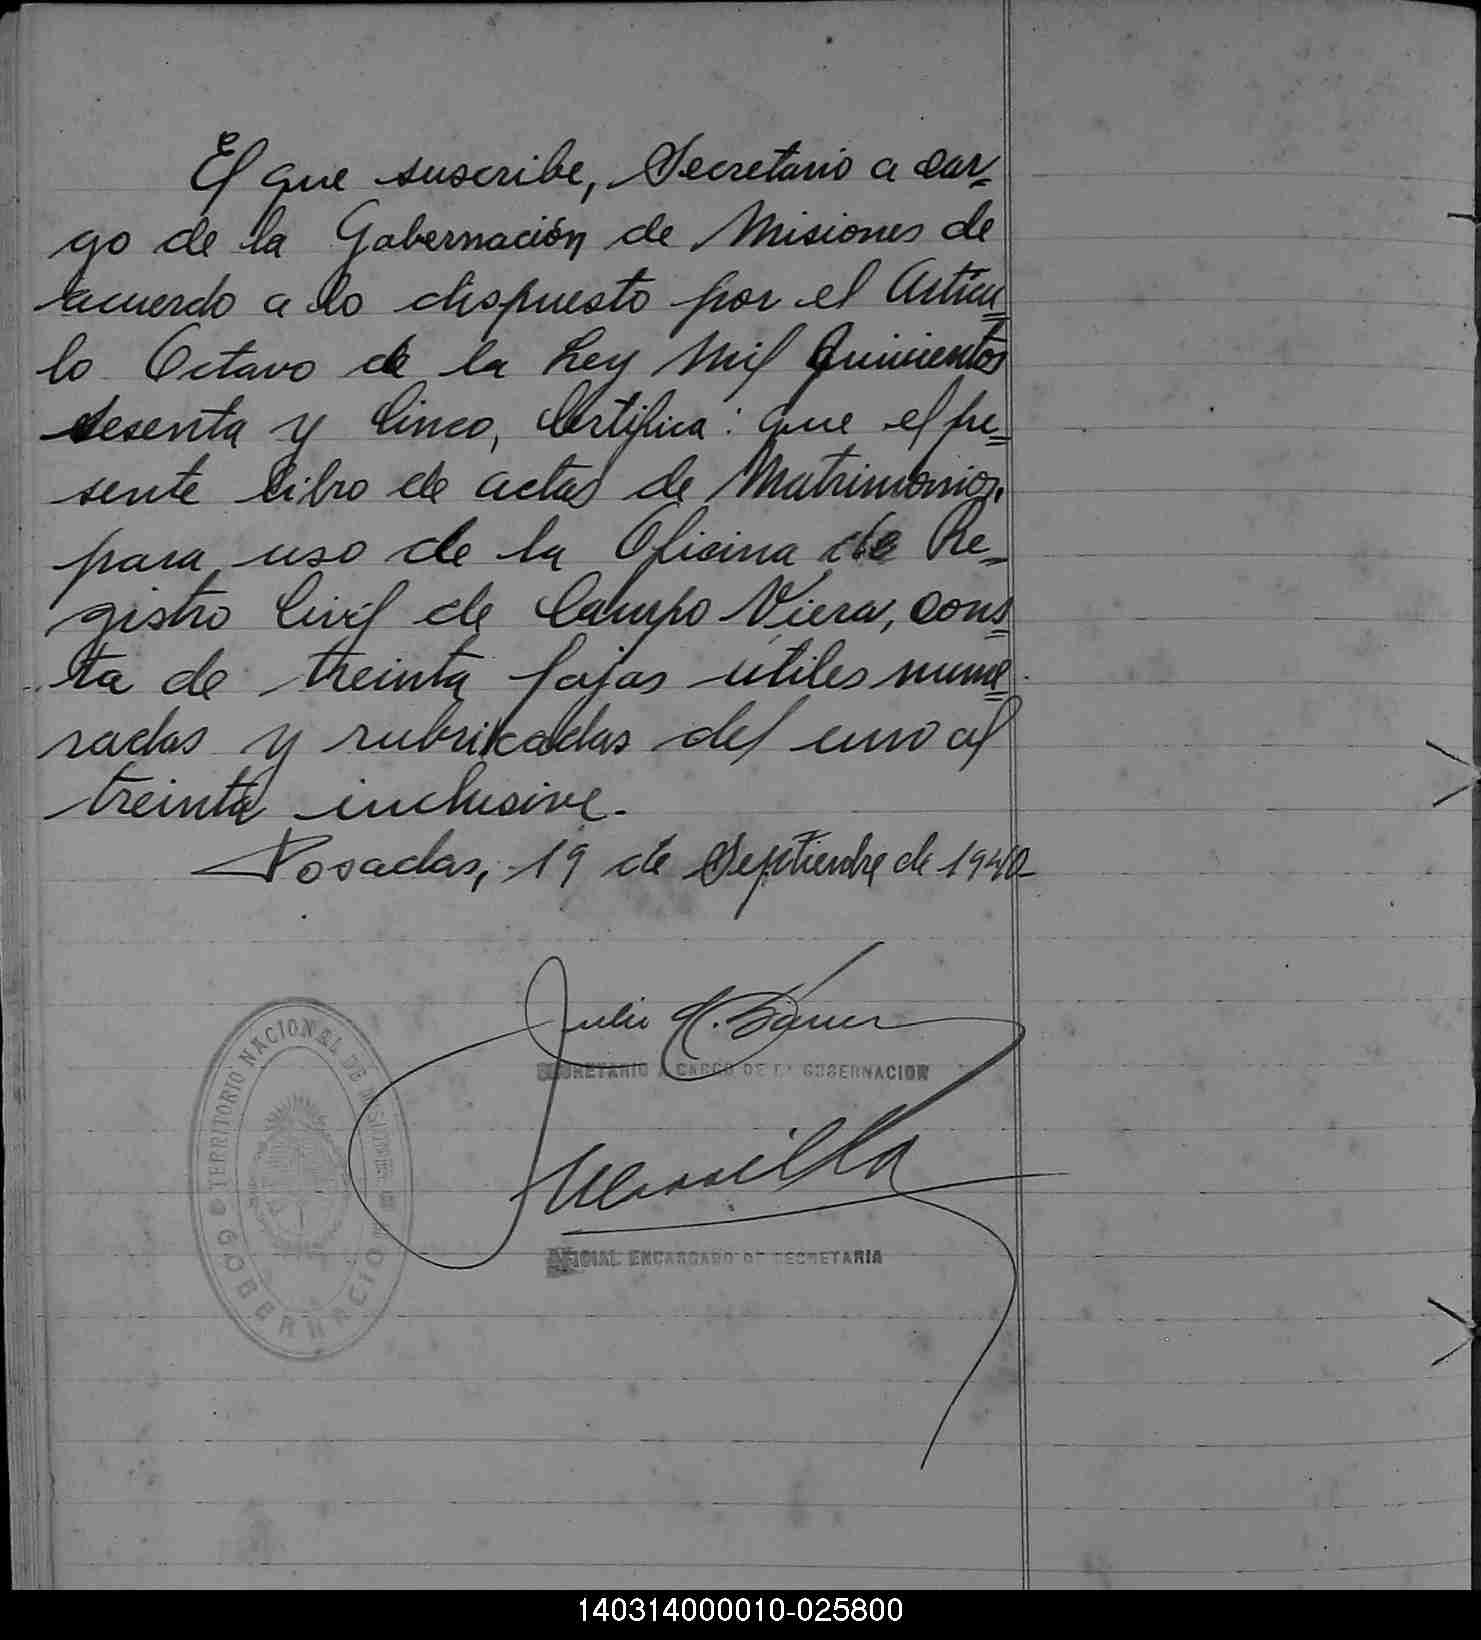 El que suscribe, Secretario a car=
go de la Gobernación de Misiones de
acuerdo a lo dispuesto por el Artícu=
lo Octavo de la Ley Mil Quinientos
sesenta y Cinco, Certifica: que el pre=
sente libro de actas de Matrimonios,
para uso de la Oficina de Re=
gistro Civil de Campo Viera, cons=
ta de treinta fojas útiles nume=
radas y rubricadas del uno al
treinta inclusive.-
Posadas, 19 de Septiembre de 1940-
Julio
SECRETARIO A CARGO DE LA GOBERNACION
OFICIAL ENCARGADO DE SECRETARIA
TERRITORIO NACIONAL DE MISIONES
GOBERNACION
140314000010-025800